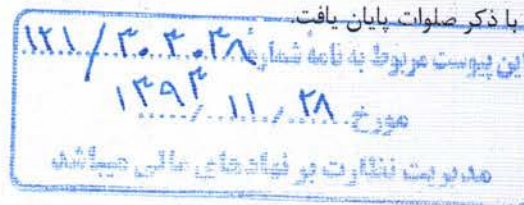 با ذکر صلوات پایان یافت.
این پیوست مربوط به نامهٔ شمارهٔ ۱۲۱/۳۰۳۰۳۸
مورخ ۱۳۹۳/۱۱/۲۸
مدیریت نظارت بر نهادهای مالی میباشد